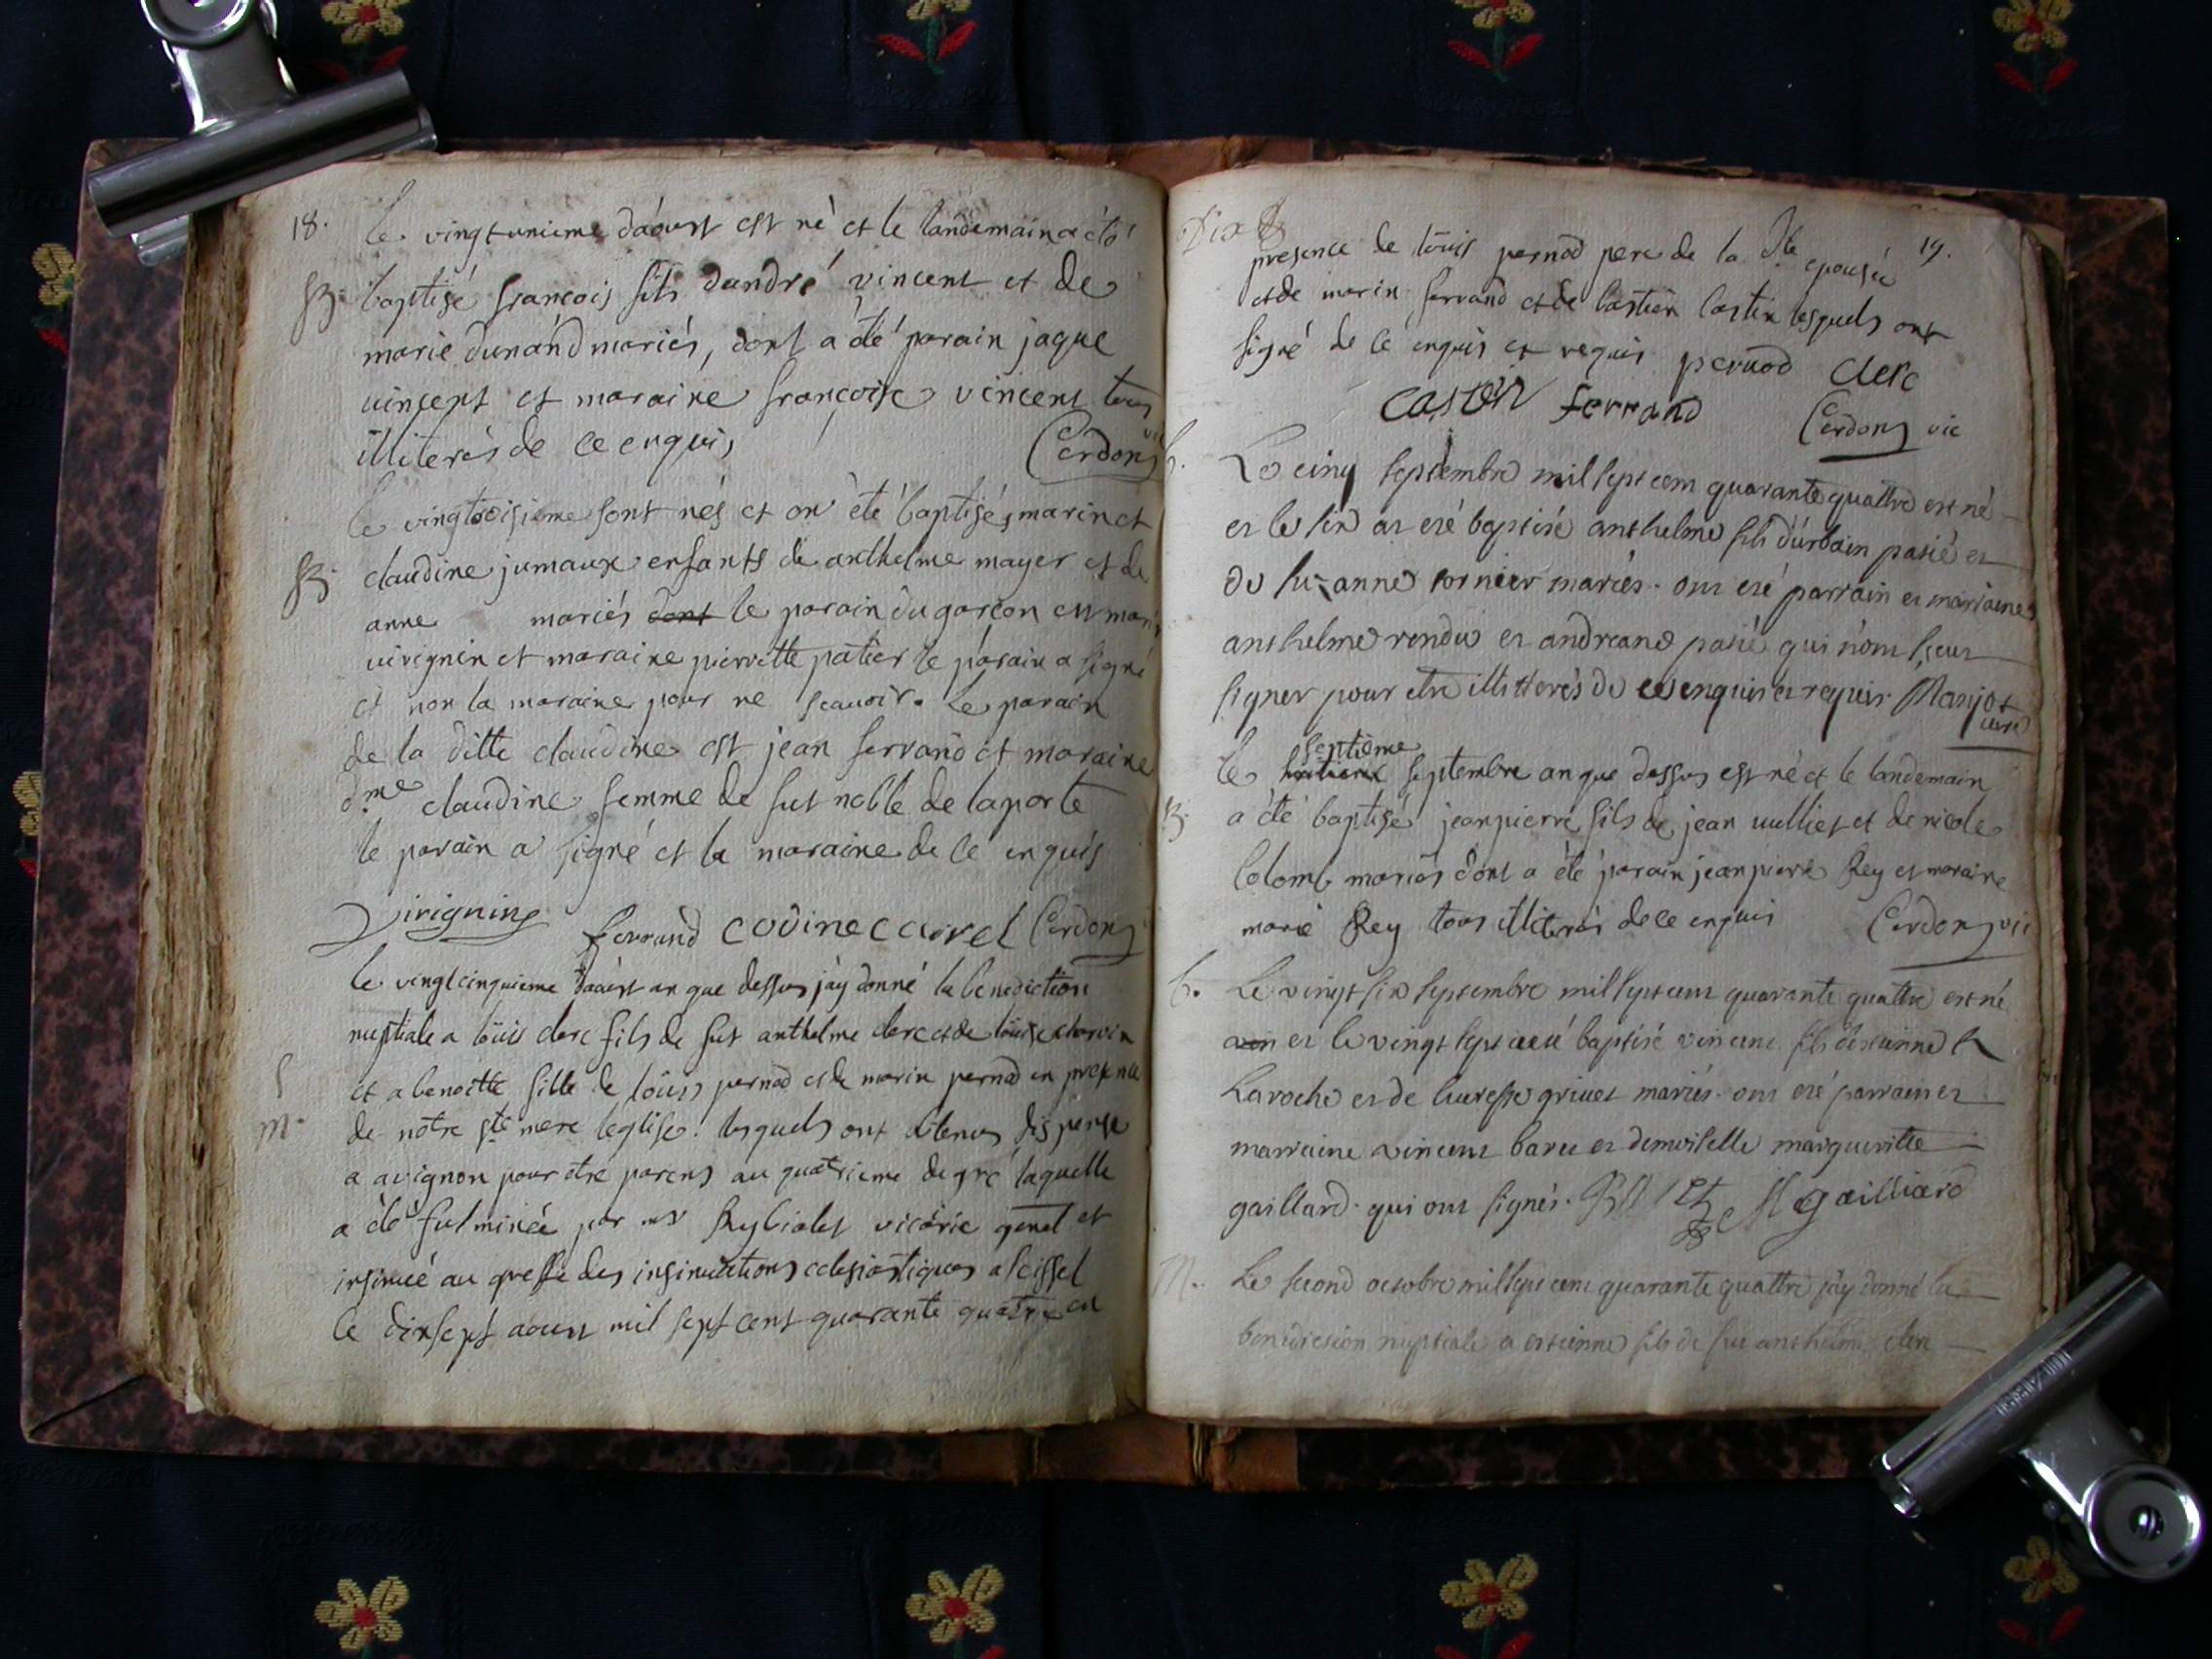 18. le vingtunieme d'aoust est né et le landemain a été
B. baptisé françois fils d'andré vincent et de
marie dunánd mariés, dont a été parain jaque
vincent et maraine françoise vincent tous
illiterés de ce enquis, Cerdon vic
le vingtroisieme sont nés et on été baptisés marin et
B. claudine jumaux enfants de anthelme mayer et de
anne mariés dont le parain du garçon est
et maraine pierrette patier le parain a signé
et non la maraine pour ne scauoir. Le parain
de la ditte claudine est jean ferrand et maraine
dme claudine femme de fut noble de laporte
le parain a signé et la maraine de ce enquis
Virignin ferrand Cerdon
le vingtcinquieme d'aoust an que dessus j'ay donné la benediction
nuptiale a loüis clerc fils de fut anthelme clerc et de loüise charvin
et a benoitte fille de loüis pernod et de marin pernod en presence
m. de nôtre ste mere leglise. lesquels ont obtenus dispense
a avignon pour être parens au quatrieme degré laquelle
a été fulminée par mr vicârie genal et
insinué au greffe des insinuations eclesiastiques a seissel
le dixsept aoust mil sept cent quarante quatre en
19.
presence de loüis pernod pere de la dte epousée
et de marin ferrand et de bastien castin lesquels ont
signé de ce enquis et requis pernod Clerc
castin ferrand Cerdon vic
b. Le cinq septembre mil sept cent quarante quattre est né
et le six at eté baptisé anthelme fils d'urbain patié et
de suzanne cornier mariés. ont eté parrain et marraine
anthelme rendu et andreane patié qui n'ont sçeut
signer pour etre illitterés de ce enquis et requis. Manjot
curé
septiéme
le huitieme septembre an que dessus est né et le landemain
B. a été baptisé jeanpierre fils de jean vulliet et de nicole
Colomb mariés dont a été parain jeanpierre Rey et maraine
marie Rey tous illiterés de ce enquis Cerdon vic
b. Le vingt six septembre mil sept cent quarante quattre est né
et le vingt sept at eté baptisé vincent fils d'estienne
Laroche et de grivet mariés. ont eté parrain et
marraine vincent baret et demoiselle margueritte
gaillard. qui ont signés. gailliard
M. Le second octobre mil sept cent quarante quattre j'ay donné la
benediction nuptiale a estienne fils de feu anthelme clerc